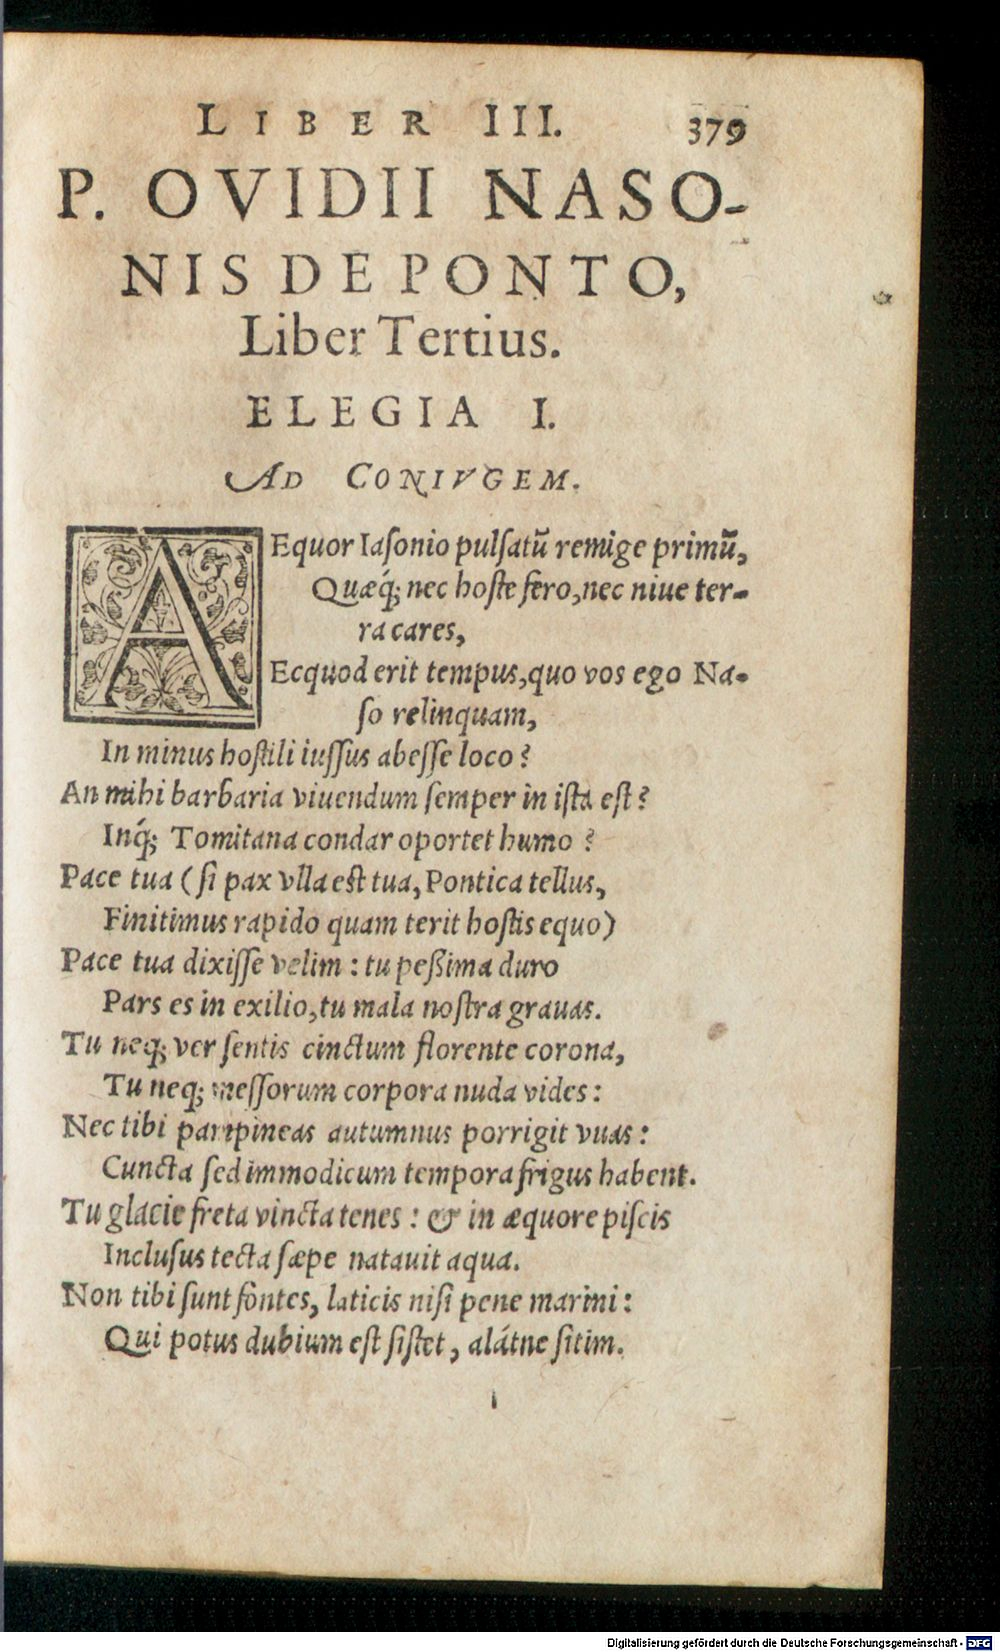 LIBER III. 379
P. OVIDII NASO-
NIS DE PONTO,
Liber Tertius.
ELEGIA I.
AD CONIVGEM.
AEquor Iaſonio pulſatũ remige primũ,
Quæq́; nec hoſte fero, nec niue ter-
ra cares,
Ecquod erit tempus, quo vos ego Na-
ſo relinquam,
In minus hoſtili iuſſus abeſſe loco?
An mihi barbaria viuendum ſemper in iſta eſt?
Inq́; Tomitana condar oportet humo?
Pace tua (ſi pax vlla est tua, Pontica tellus,
Finitimus rapido quam terit hoſtis equo)
Pace tua dixiſſe velim: tu peßima duro
Pars es in exilio, tu mala noſtra grauas.
Tu neq; ver ſentis cinctum florente corona,
Tu neq; meſſorum corpora nuda vides:
Nec tibi pampineas autumnus porrigit vuas:
Cuncta ſed immodicum tempora frigus habent.
Tu glacie freta vincta tenes: & in æquore piſcis
Incluſus tecta ſæpe natauit aqua.
Non tibi ſunt fontes, laticis niſi pene marini:
Qui potus dubium eſt ſiſtet, alátne ſitim.
Digitalisierung gefördert durch die Deutsche Forschungsgemeinschaft - DFG